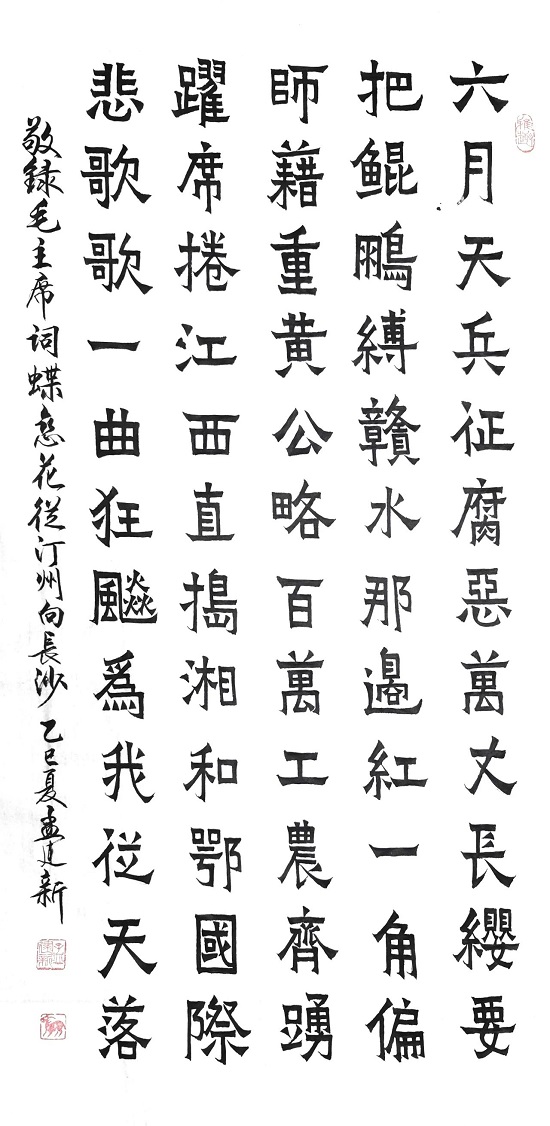 六月天兵征腐惡萬丈長纓要
把鯤鵬縛贛水那邉紅一角偏
師藉重黄公略百萬工農齊踴
躍席捲江西直搗湘和鄂國際
悲歌歌一曲狂飈爲我從天落
敬録毛主席詞蝶恋花從汀州向長沙 乙巳夏孟建新